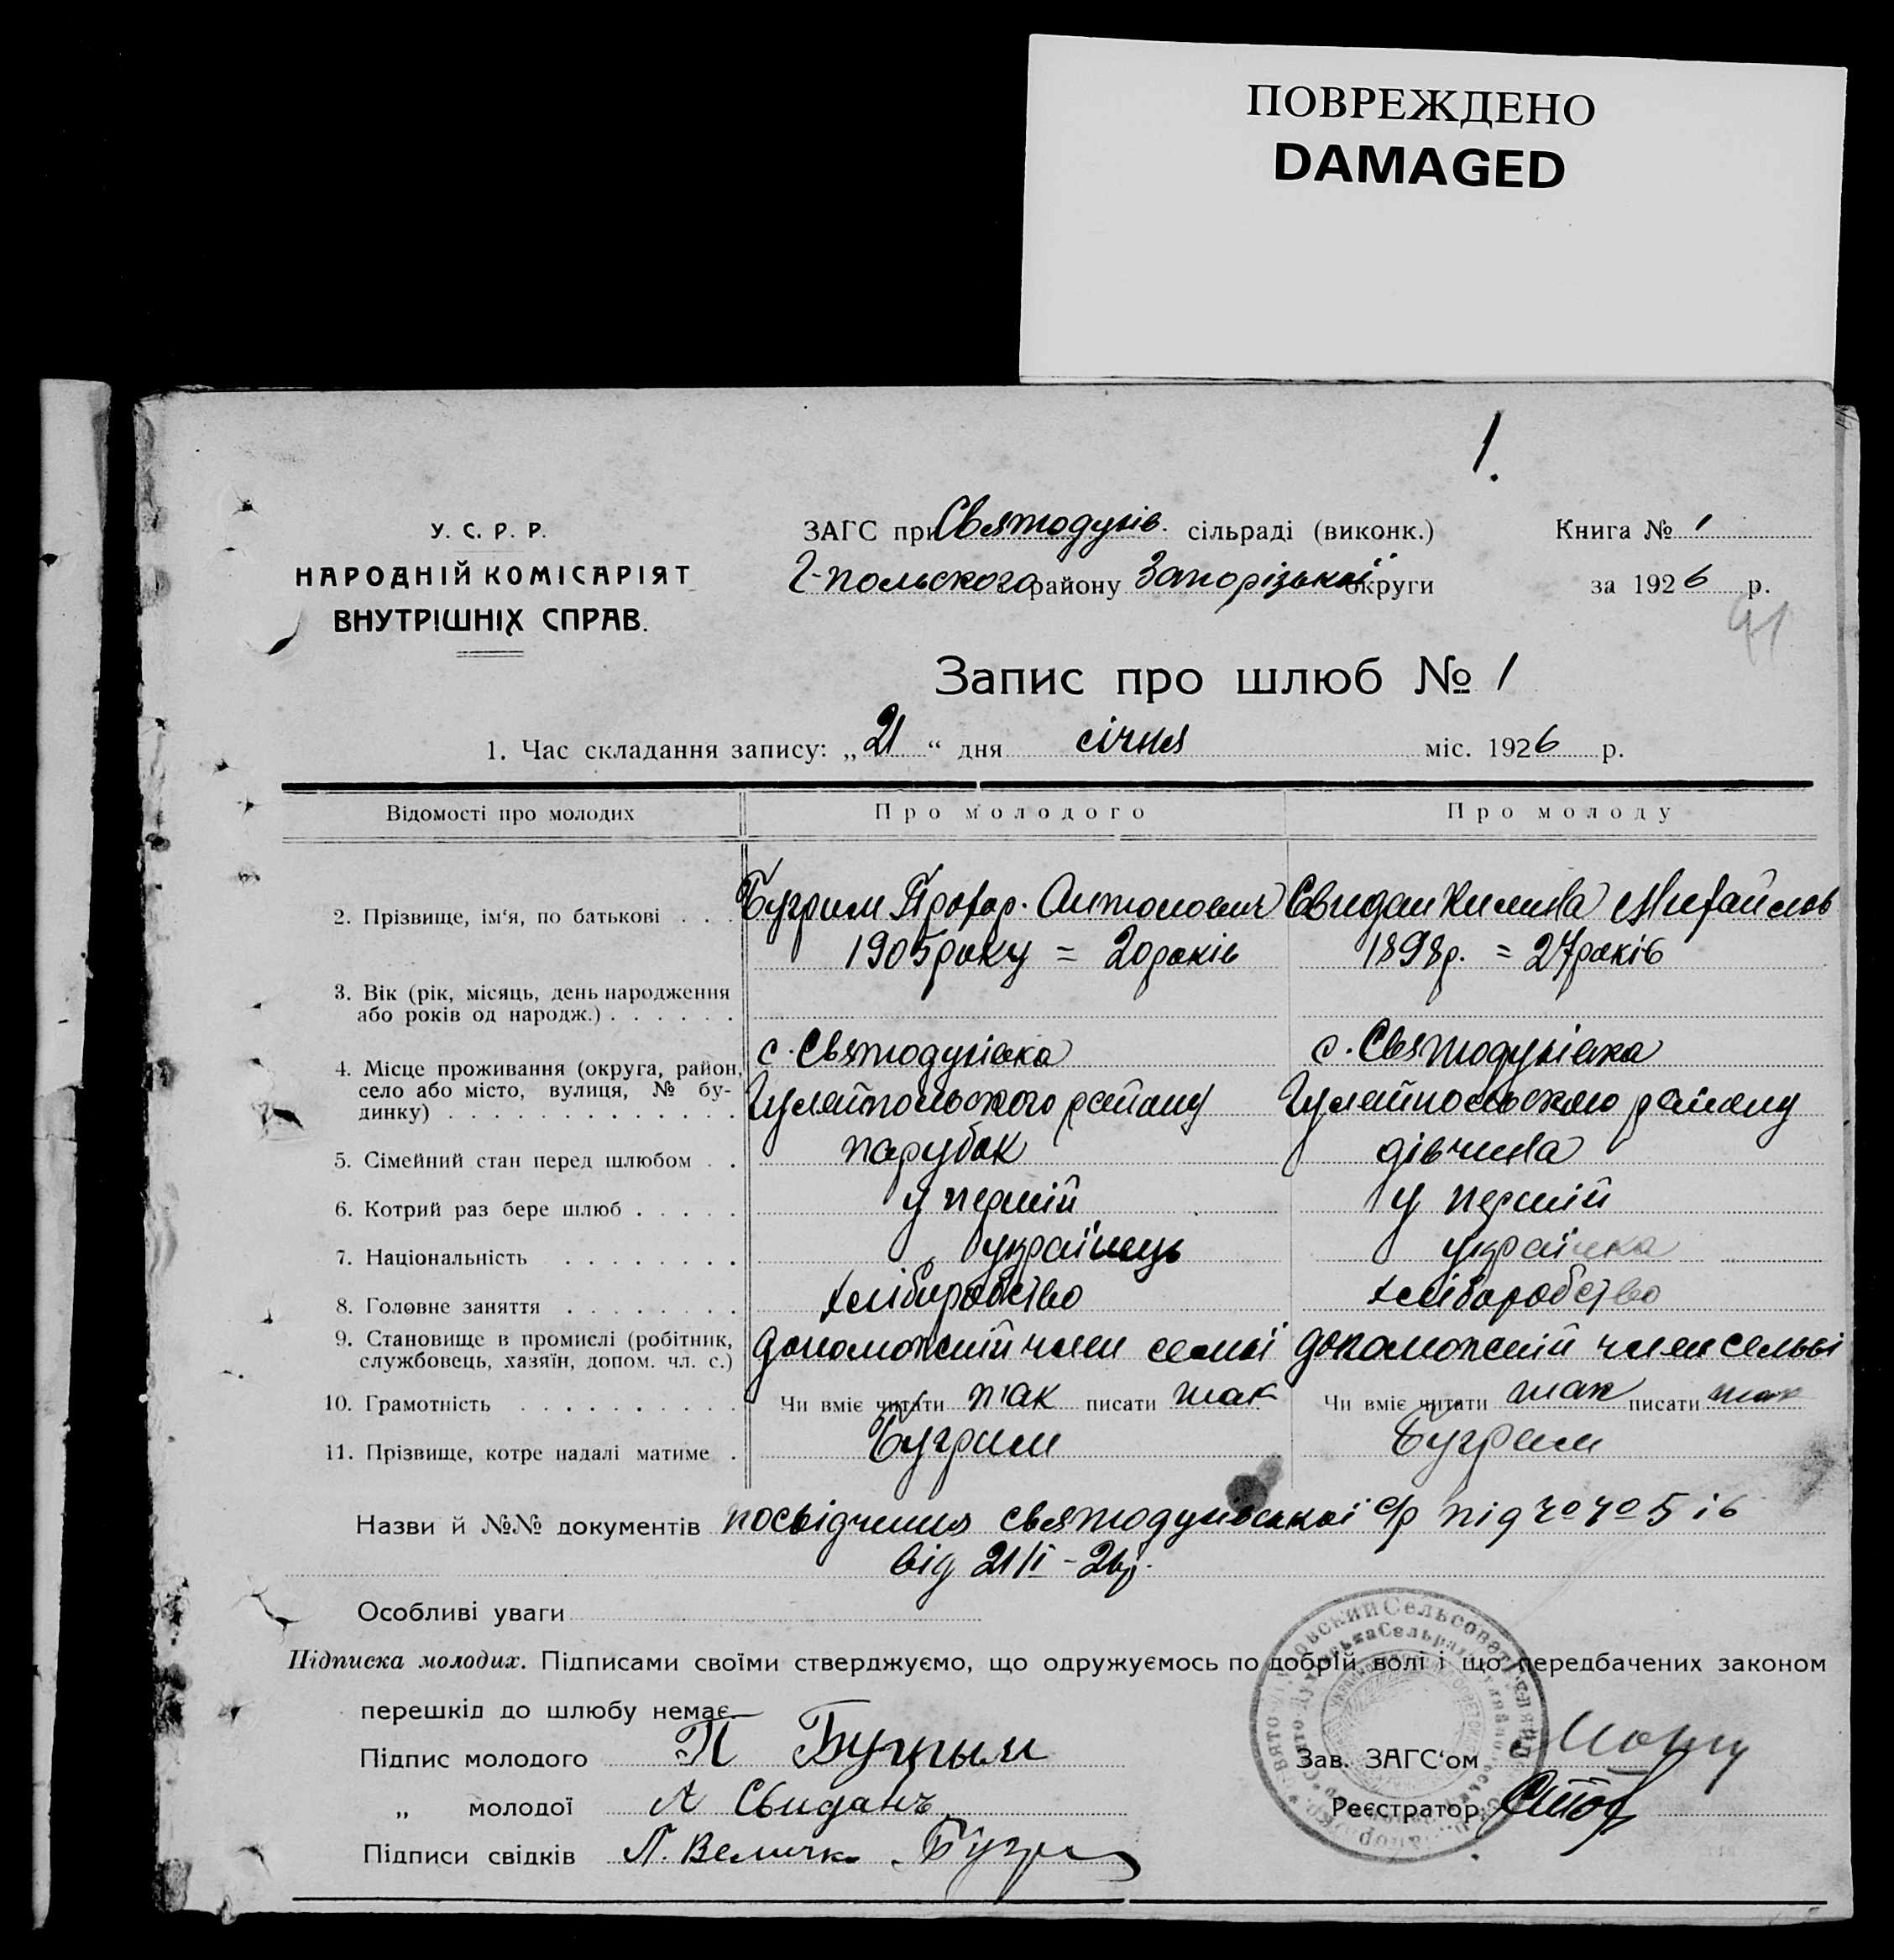 ПОВРЕЖДЕНО
DAMAGED
1.
У. С. Р. Р.
НАРОДНІЙ КОМІСАРІЯТ
ВНУТРІШНІХ СПРАВ.
ЗАГС при Святодухів. сільраді (виконк.)
Г-польского району Запорізької округи
Книга № 1
за 1926 р.
41
Запис про шлюб № 1
1. Час складання запису: „21“ дня січня міс. 1926 р.
Відомості про молодих Про молодого Про молоду
2. Прізвище, ім‘я, по батькові . . . Бугрим Прохор. Антонович Свидан Михайлов
1905 року = 20 років 1898 р. = 27 років
3. Вік (рік, місяць, день народження
або років од народж.) . . . . . .
с. Святодухівка с. Святодухівка
4. Місце проживання (округа, район,
село або місто, вулиця, № бу-
динку) . . . . . . . . . . . . . Гуляйпольского району Гуляйпольского району
5. Сімейний стан перед шлюбом . . парубок дівчина
6. Котрий раз бере шлюб . . . . . у перший у перший
7. Національність . . . . . . . . українець українка
8. Головне заняття . . . . . . . хліборобство хліборобство
9. Становище в промислі (робітник,
службовець, хазяїн, допом. чл. с.) допоможний член семьї допоможний член семьі
10. Грамотність . . . . . . . . . . Чи вміє читати так писати так Чи вміє читати так писати так
11. Прізвище, котре надалі матиме . Бугрим Бугрим
Назви й №№ документів посвідчення святодухівської с/р під 5 і 6
від 21/I - 26р.
Особливі уваги
Підписка молодих. Підписами своїми стверджуємо, що одружуємось по добрій волі і що передбачених законом
перешкід до шлюбу немає.
Підпис молодого П Бугрым
„ молодої А Свиданъ
Підписи свідків П. Величко Бугри
Зав. ЗАГС‘ом
Реєстратор